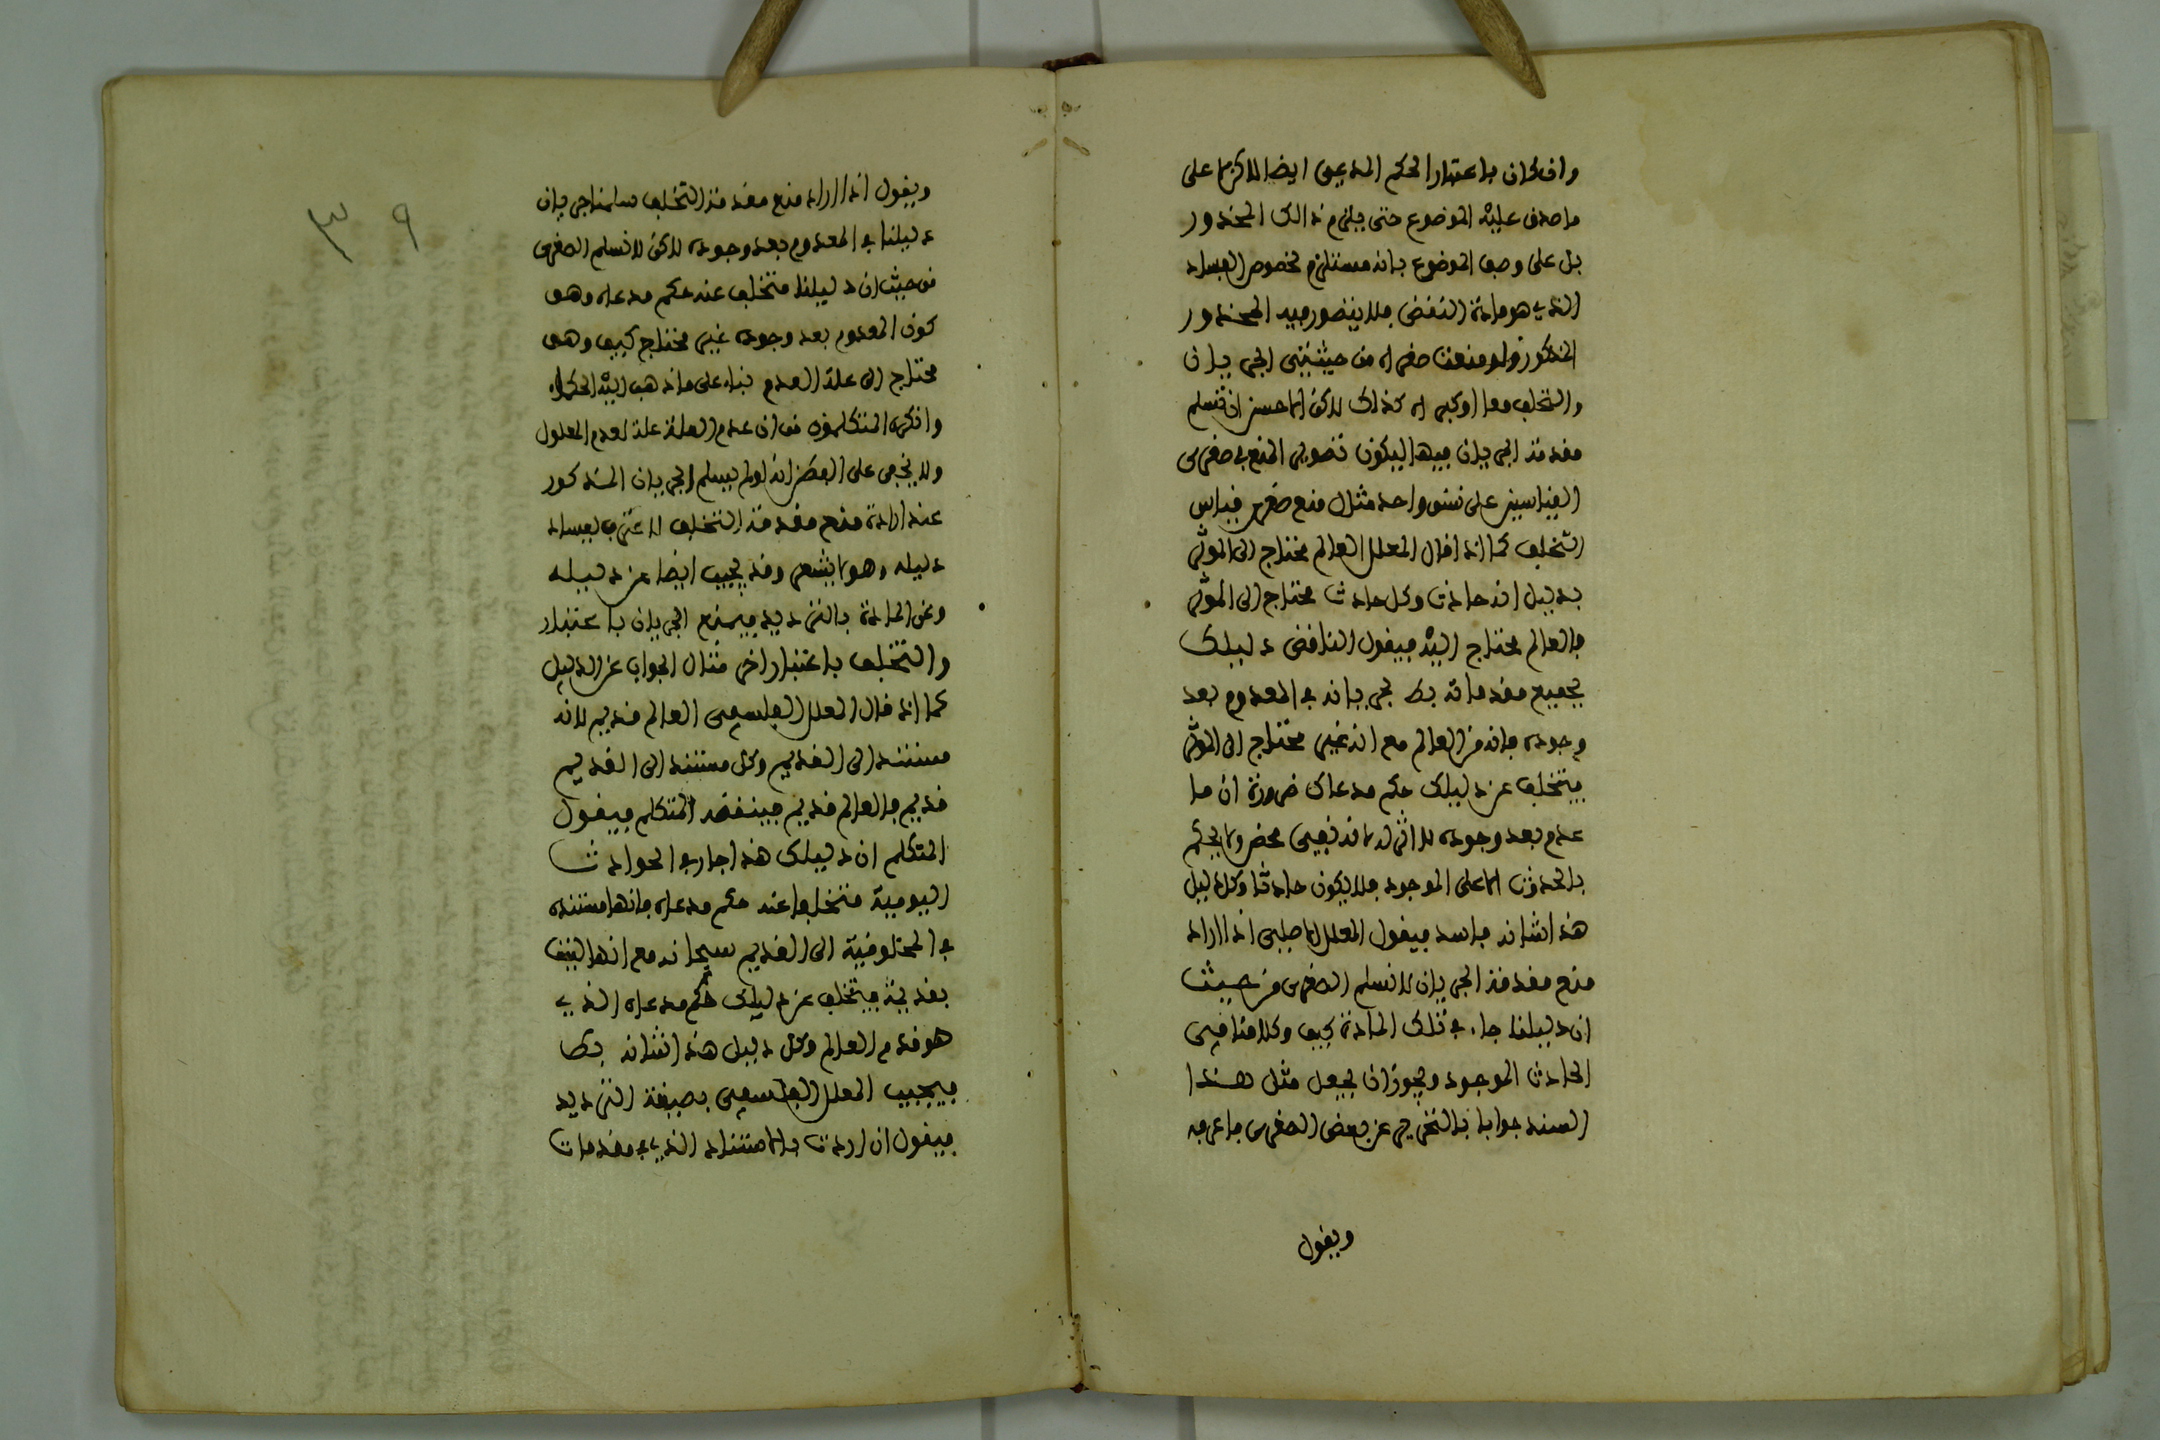 وان كان باعتبار الحكم المدعى ايضا لاكن لا على
ما صدق عليه الموضوع حتى يلزم ذالك المحذور
بل على وصف الموضوع بانه مستلزم لخصوص الفساد
الذي هو مادة النقض فلا يتصور فيه المحذور
المذكور ولو منعت صغراه من حيثيتى الجريان
والتخلف معا او كبراه كذلك لاكن الاحسن ان تسلم
مقدمة الجريان فيها ليكون تصوير المنع في صغرى
القياسين على نسق واحد مثال منع صغرى قياس
التخلف كما اذا قال المعلل العالم محتاج الى المؤثر
بدليل انه حادث وكل حادث محتاج الى المؤثر
فالعالم محتاج اليه فيقول الناقض دليلك
بجميع مقدماته بط لجريانه في المعدوم بعد
وجوده فانه من العالم مع انه غير محتاج الى المؤثر
فيتخلف عن دليلك حكم مدعاك ضرورة ان ما
عدم بعد وجوده لا اثر له لانه نفي محض ولا يحكم
بالحدوث الا على الموجود فلا يكون حادثا وكل دليل
هذا شانه فاسد فيقول المعلل الاصلي اذا اراد
منع مقدمة الجريان لا نسلم الصغرى من حيث
ان دليلنا جار في تلك المادة كيف وكلامنا في
الحادث الموجود ويجوز ان يجعل مثل هذا
السند جوابا بالتحرير عن بعض الصغرى فاعرفه
ويقول
٩ ٣
ويقول اذا اراد منع مقدمة التخلف سلمنا جريان
دليلنا في المعدوم بعد وجوده لاكن لا نسلم الصغرى
من حيث ان دليلنا متخلف عنه حكم مدعاه وهو
كون المعدوم بعد وجوده غير محتاج كيف وهو
محتاج الى علة العدم بناء على ما ذهب اليه الحكماء
وانكره المتكلمون من ان عدم العلة علة لعدم المعلول
ولا يخفى على الفطن انه لو لم يسلم الجريان المذكور
عند ارادة منع مقدمة التخلف لاعترف بفساد
دليله وهو لا يشعر وقد يجيب ايضا عن دليله
وعن المادة بالترديد فيمنع الجريان باعتبار
والتخلف باعتبار اخر مثال الجواب عن الدليل
كما اذا قال المعلل الفلسفي العالم قديم لانه
مستند الى القديم وكل مستند الى القديم
قديم فالعالم قديم فينقضه المتكلم فيقول
المتكلم ان دليلك هذا جار في الحوادث
اليومية متخلفا عنه حكم مدعاه فانها مستندة
في المخلوقية الى القديم سبحانه مع انها ليست
بقديمة فيتخلف عن دليلك حكم مدعاه الذي
هو قدم العالم وكل دليل هذا شانه بط
فيجيب المعلل الفلسفي بصيغة الترديد
فيقول ان اردت بالاستناد الذي في مقدمات